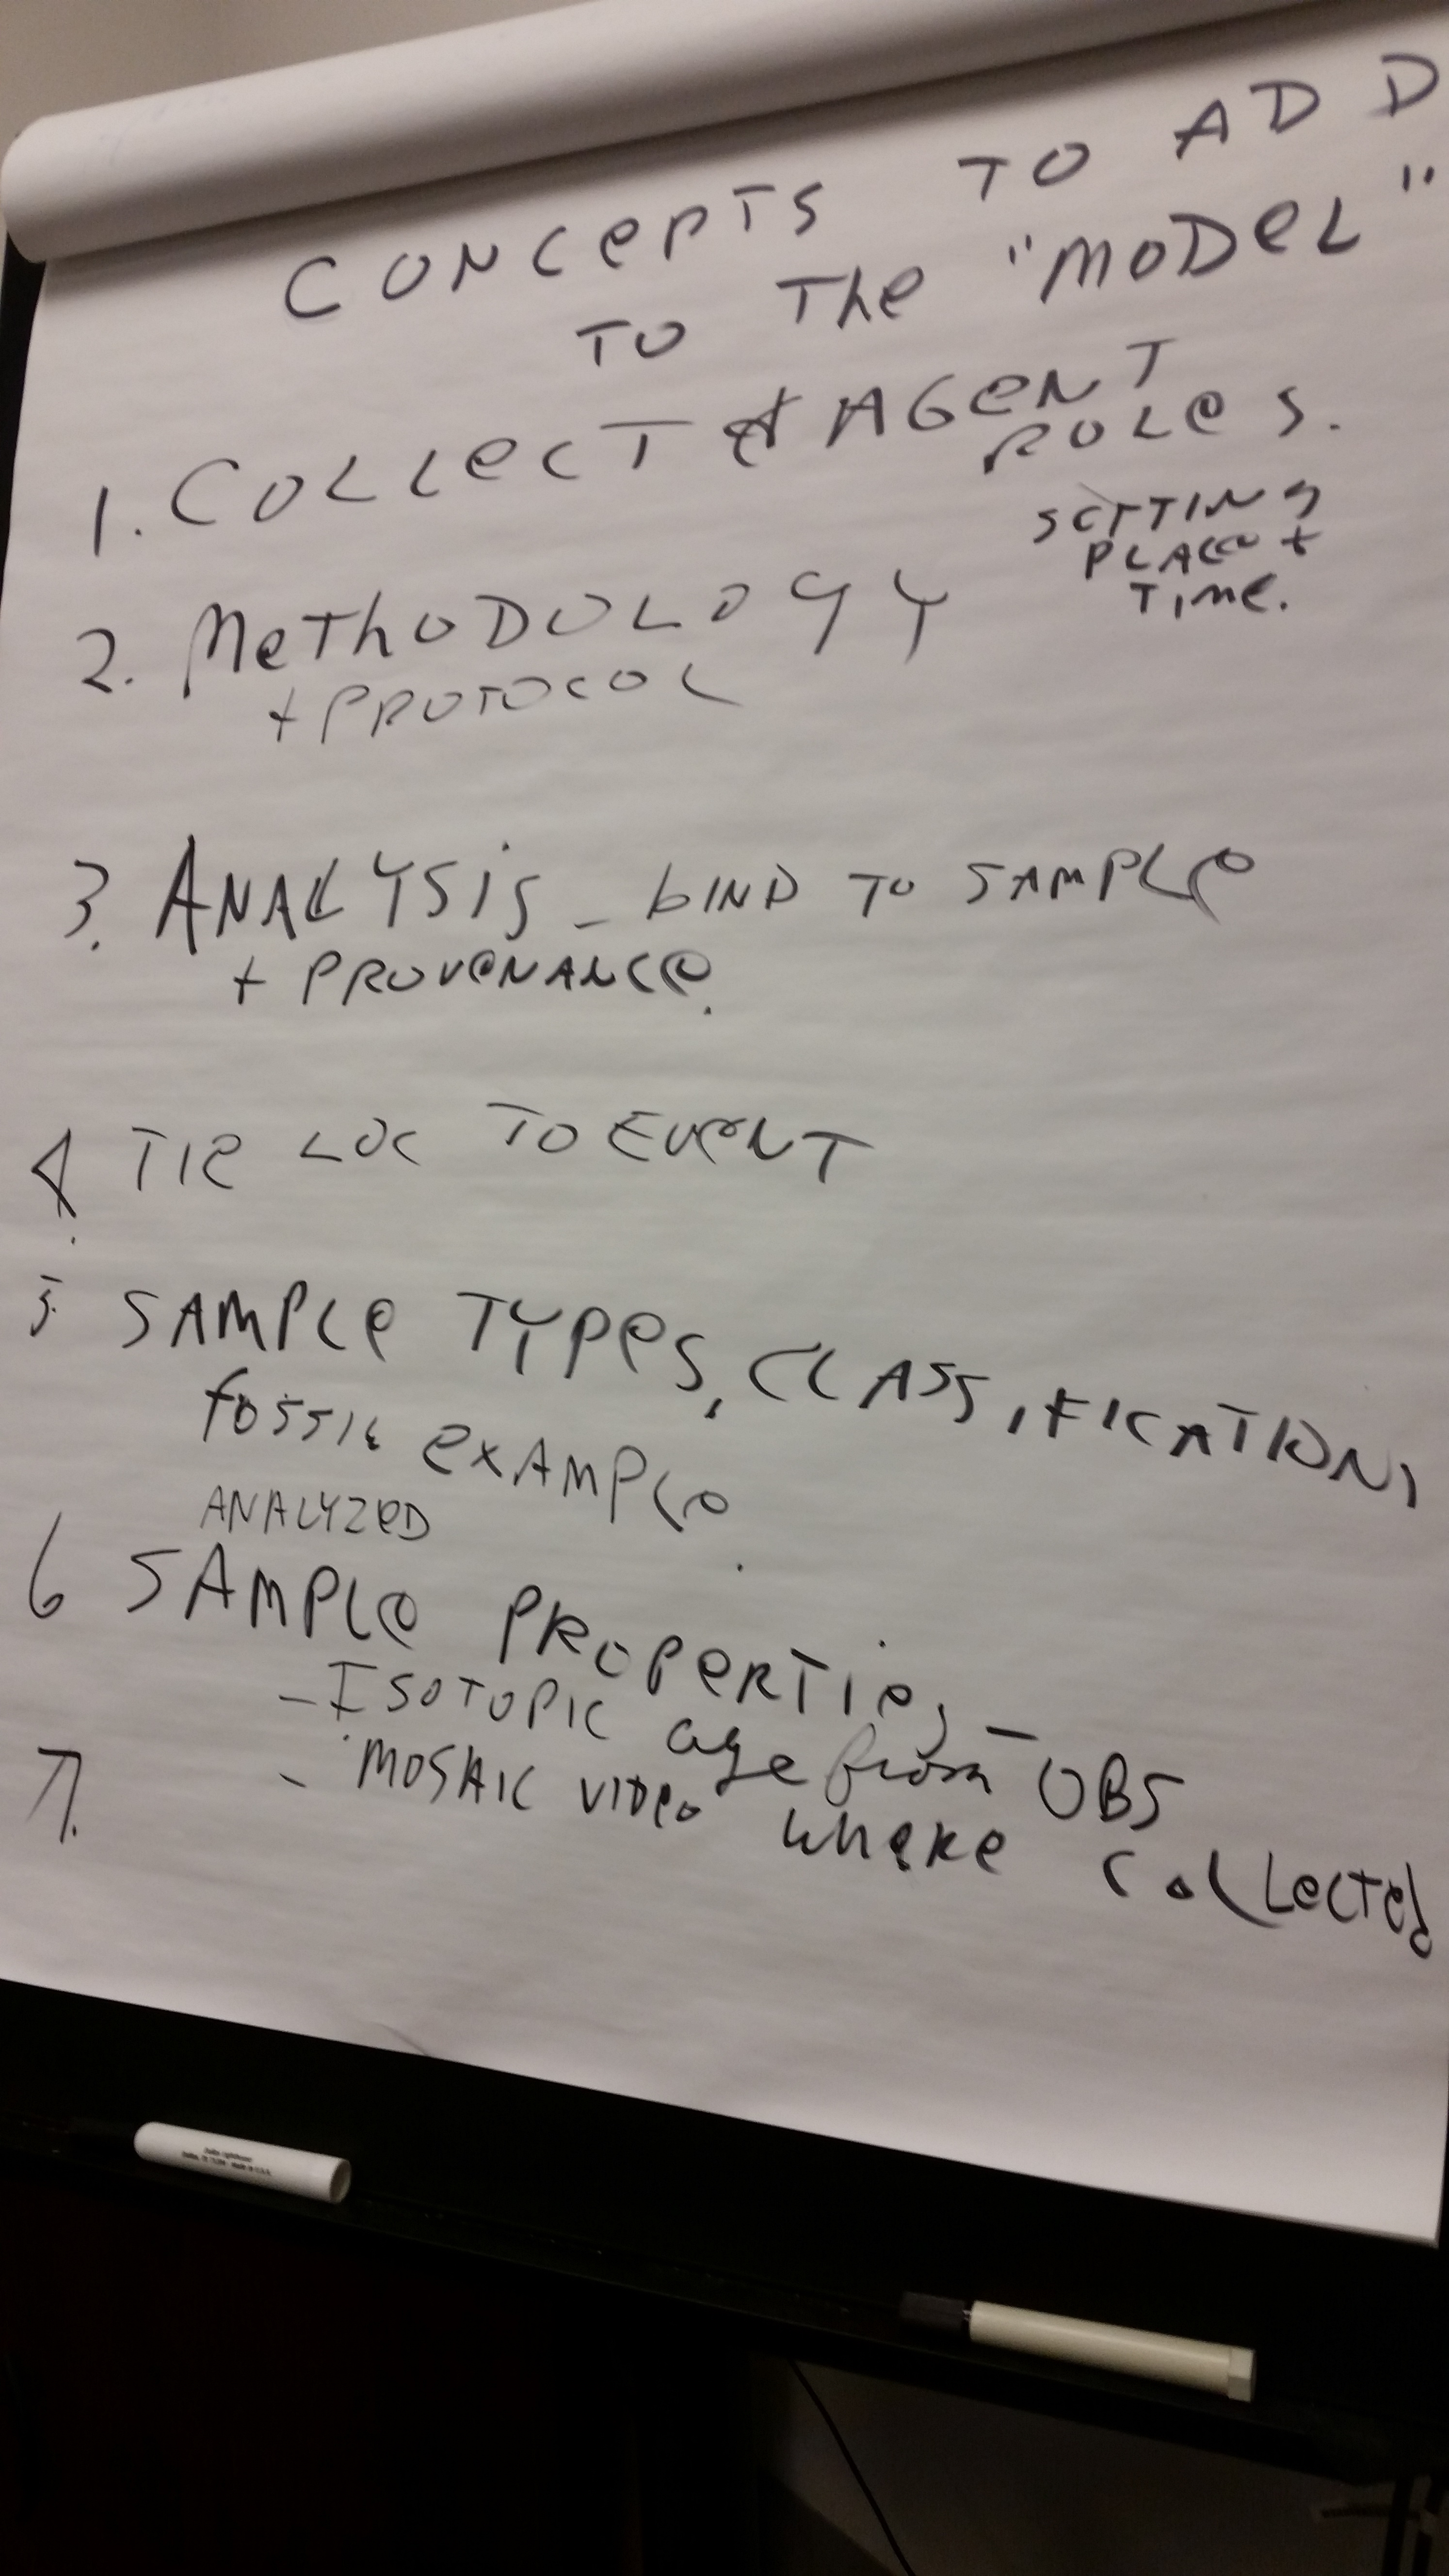 CONCEPTS TO ADD
TO THE "MODEL"
1. COLLECT & AGENT
ROLES.
2. METHODOLOGY
+ PROTOCOL
SETTING?
PLACE +
TIME.
3. ANALYSIS - BIND TO SAMPLE
+ PROVENANCE.
4. TIE LOC TO EVENT
5. SAMPLE TYPES, CLASSIFICATION,
FOSSIL EXAMPLE
ANALYZED
6 SAMPLE PROPERTIE,
- ISOTOPIC age from - OBS
- MOSAIC VIDEO where Collected
7.